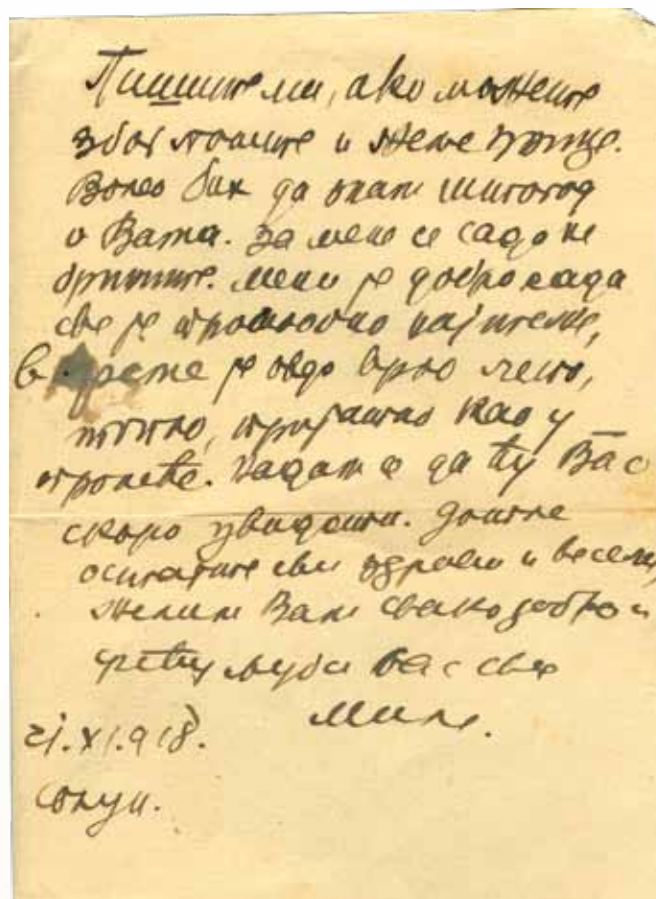 Пишите ми, ако можете
због помете и Жене
Волео бих да знам штогод
о Вама. За мене се садо не
бринуте. мени је добро сада
све је прошло оно најтеже,
време је овде врло лепо,
топло, пријатно као у
пролеће. Надам се да ћу Вас
скоро увидети. Донтле
останите сви здрави и весели,
желим Вам свако добро и
срећу љуби вас све
Миле.
21.XI.918.
Солун.